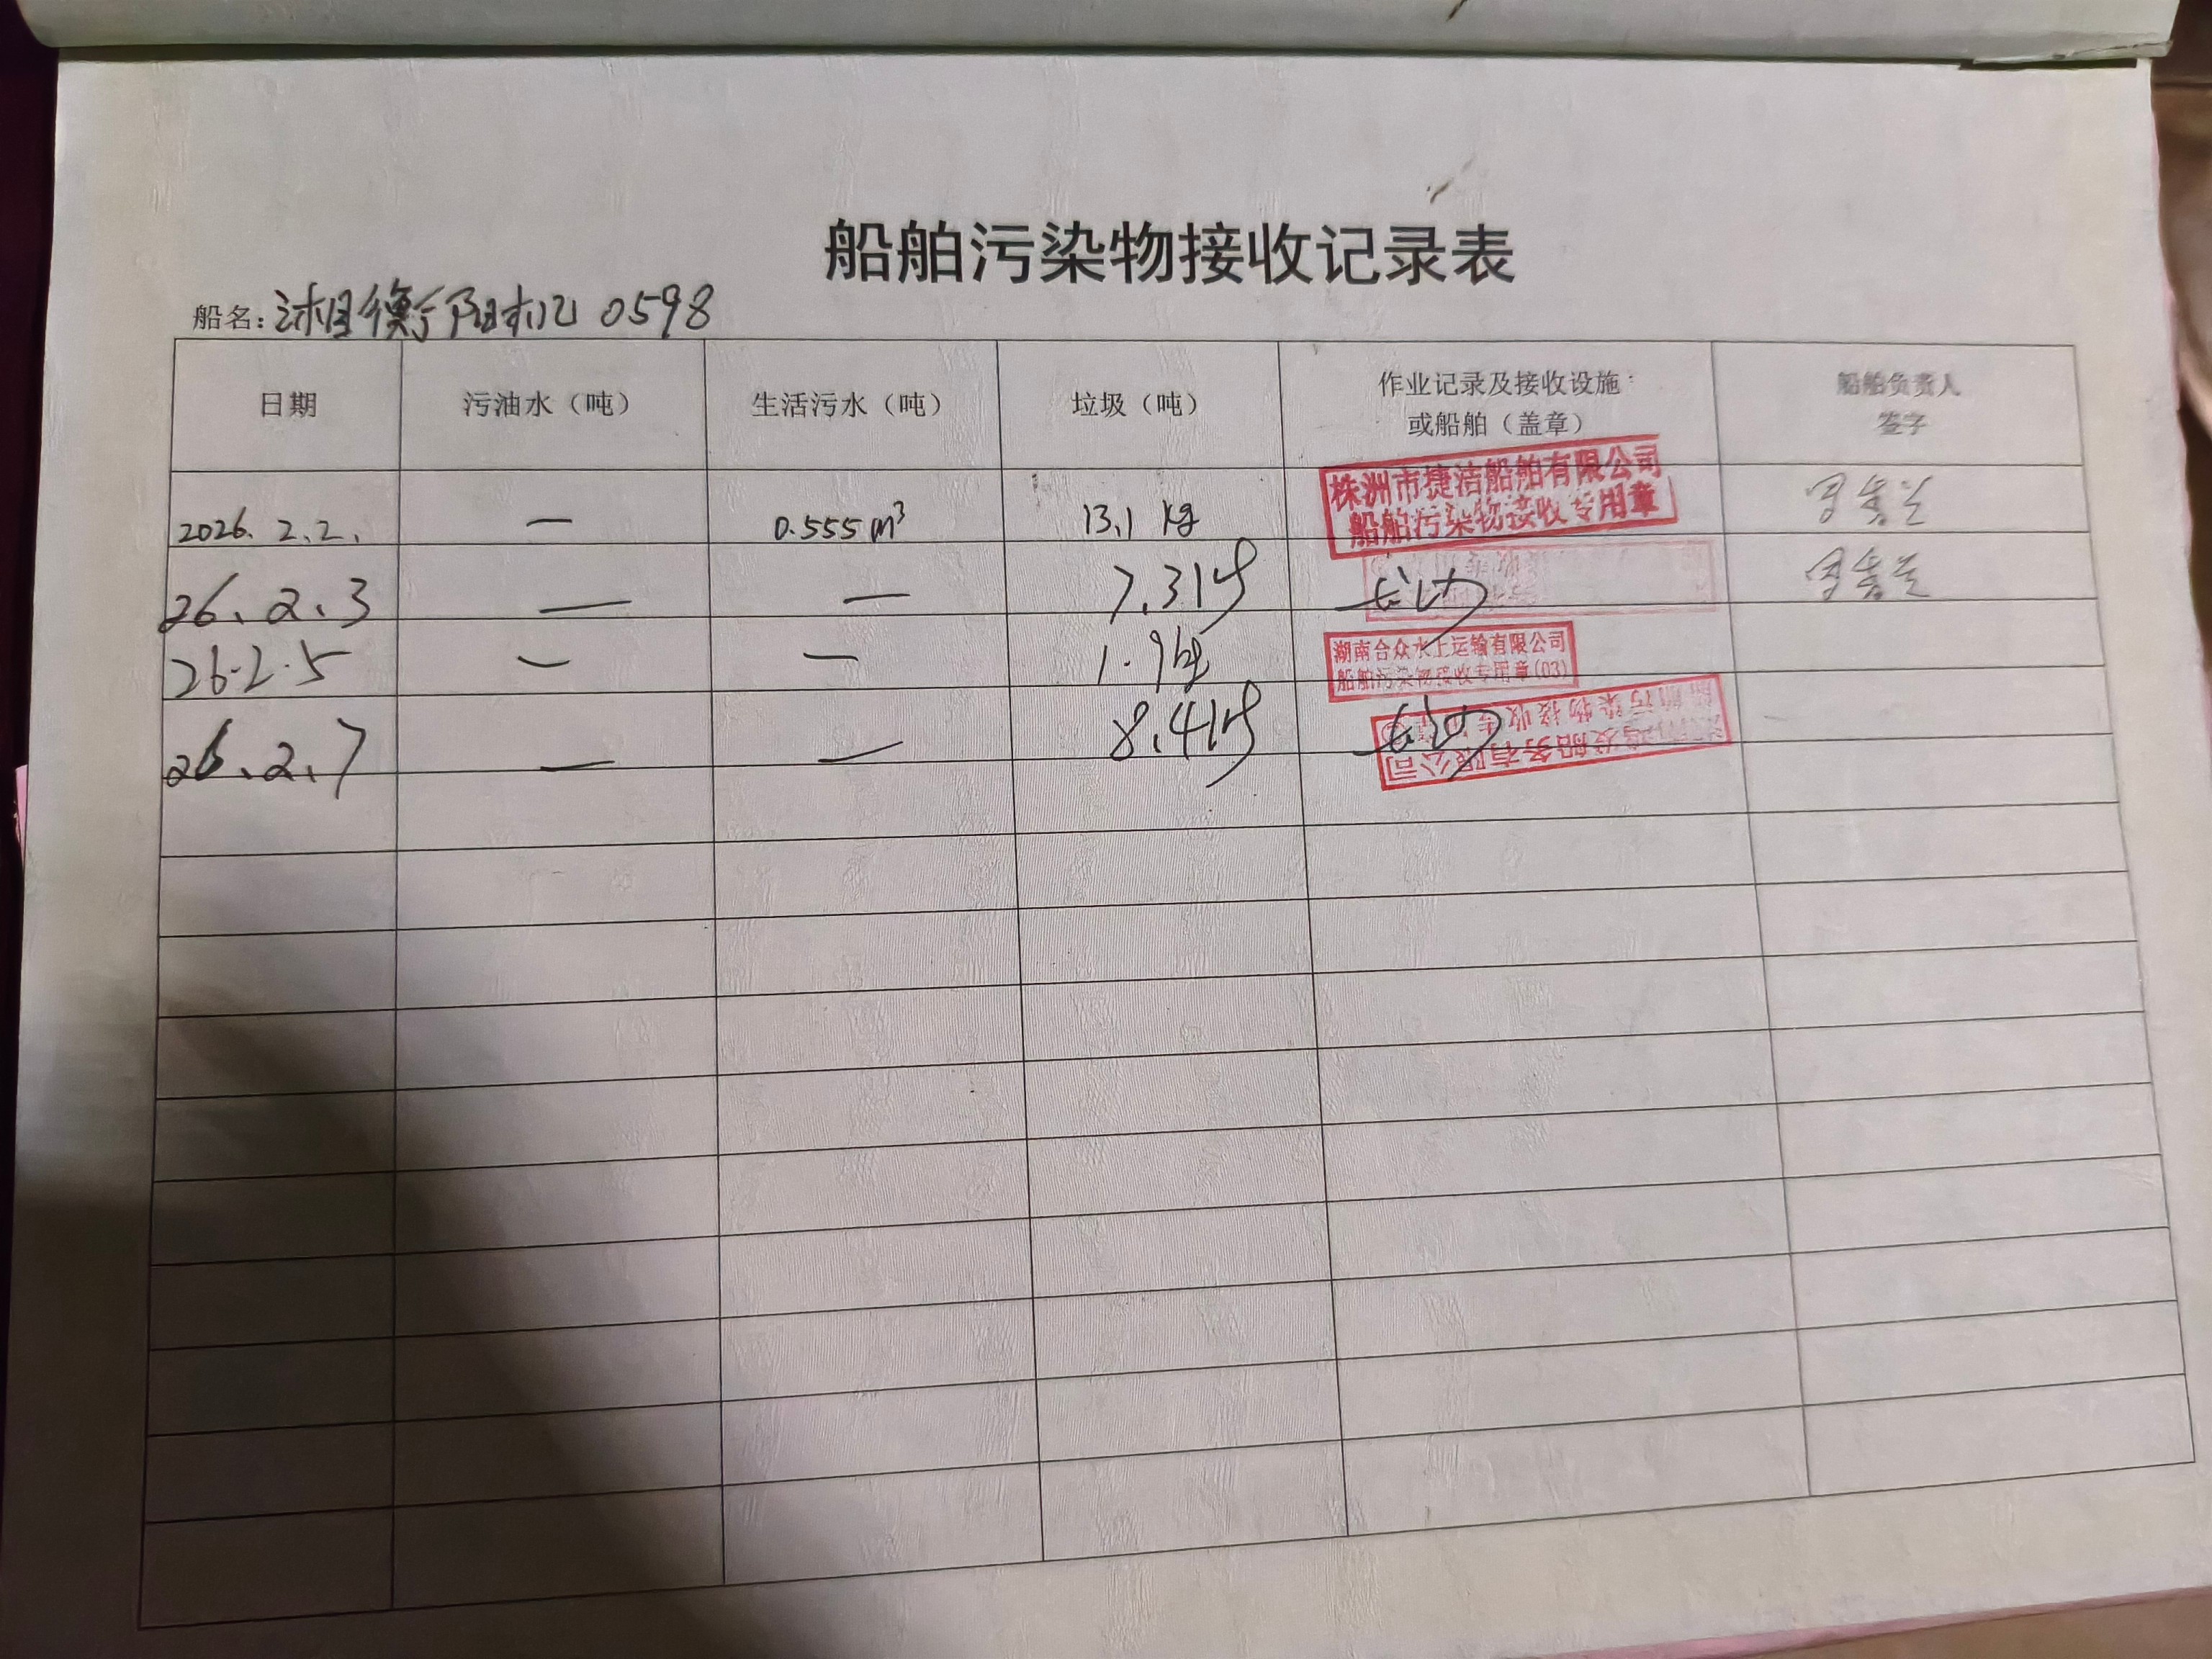 船舶污染物接收记录表
船名：湘衡阳机 0598
日期 污油水（吨） 生活污水（吨） 垃圾（吨） 作业记录及接收设施或船舶（盖章） 船舶负责人签字
2026.2.2. — 0.555m³ 13.1 kg
株洲市捷洁船舶有限公司
船舶污染物接收专用章
26.2.3 — — 7.31
26.2.5 — — 1.9kg
湖南合众水上运输有限公司
船舶污染物接收专用章(03)
26.2.7 — — 8.41
船舶污染物接收
发船务有限公司